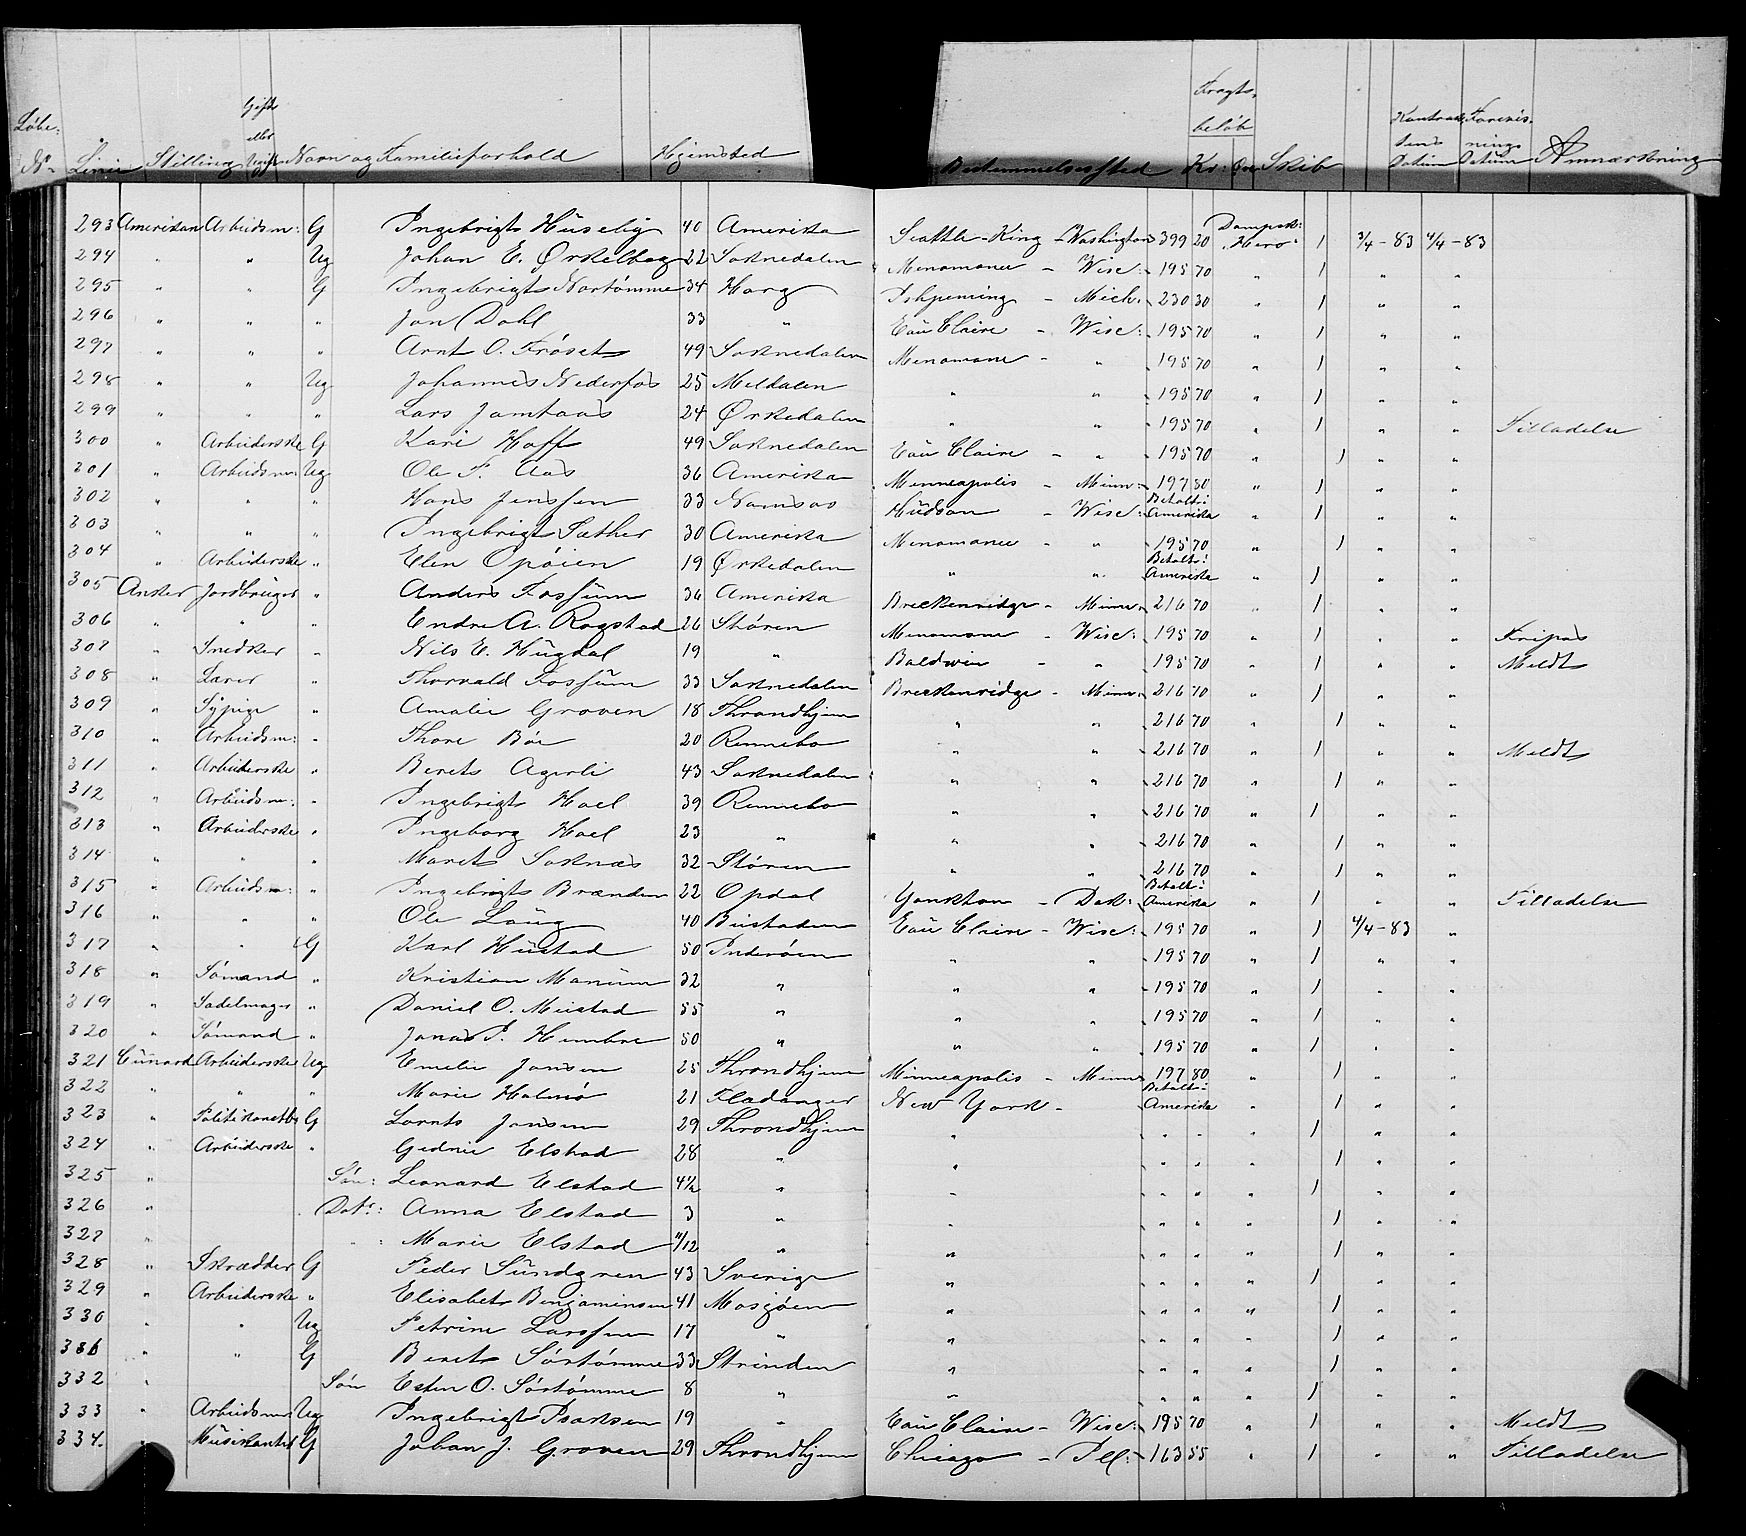 Löbe- No. Linie Stilling Gift eller Ugift Navn og Familieforhold Hjemsted Bestemmelsessted Fragtbeløb Kr: Øre Skib Kontraktens Datum Forevisnings Datum Anmærkning
293 Amerikan Arbeidsm: G Ingebrigt Huselig 40 Amerika Seattle - King - Washington 399 20 Dampsk: "Hero" 1 3/4 - 83 4/4 - 83
294 " " Ug Johan E. Ørkelbog 22 Soknedalen Menomonee - Wisc: 195 70 " 1 " "
295 " " G Ingebrigt Nortømme 34 Horg Ishpeming - Mich: 230 30 " 1 " "
296 " " " Jon Dahl 33 " Eau Claire - Wisc: 195 70 " 1 " "
297 " " " Arnt O. Frøset 49 Soknedalen Menomonee - " 195 70 " 1 " "
298 " " Ug Johannes Nederfos 25 Meldalen " " 195 70 " 1 " "
299 " " " Lars Jamtaas 24 Ørkedalen " " 195 70 " 1 " " Tilladelse
300 " Arbeiderske G Kari Hoff 49 Soknedalen Eau Claire - " 195 70 " 1 " "
301 " Arbeidsm: Ug Ole P. Aas 36 Amerika Minneapolis - Minn: 197 80 " 1 " "
302 " " " Hans Jenssen 33 Namsos Hudson - Wisc: Betalt i Amerika " 1 " "
303 " " " Ingebrigt Sæther 30 Amerika Menomonee - " 195 70 " 1 " "
304 " Arbeiderske " Elen Opøien 19 Ørkedalen " " Betalt i Amerika " 1 " "
305 Anker Jordbruger " Anders Fossum 36 Amerika Breckenridge - Minn: 216 70 " 1 " "
306 " " " Endre A. Rogstad 26 Støren Menomonee - Wisc: 195 70 " 1 " " Fripas
307 " Snedker " Nils E. Hugdal 19 " Baldwin - " 195 70 " 1 " " Meldt
308 " Lærer " Thorvald Fossum 33 Soknedalen Breckenridge - Minn: 216 70 " 1 " "
309 " Sypige " Amalie Groven 18 Throndhjem " " 216 70 " 1 " "
310 " Arbeidsm: " Thore Bøe 20 Rennebo " " 216 70 " 1 " " Meldt
311 " Arbeiderske " Berets Agerli 43 Soknedalen " " 216 70 " 1 " "
312 " Arbeidsm: " Ingebrigt Hoel 39 Rennebo " " 216 70 " 1 " "
313 " Arbeiderske " Ingeborg Hoel 23 " " " 216 70 " 1 " "
314 " " " Marets Soknæs 32 Støren " " 216 70 " 1 " "
315 " Arbeidsm: " Ingebrigt Brænden 22 Opdal Yankton - Dak: Betalt i Amerika " 1 " " Tilladelse
316 " " " Ole Laug 40 Beitstaden Eau Claire - Wisc: 195 70 " 1 4/4 - 83 "
317 " " G Karl Hustad 50 Inderøen " " 195 70 " 1 " "
318 " Sømand " Kristian Manum 32 " " " 195 70 " 1 " "
319 " Sadelmager " Daniel O. Meistad 55 " " " 195 70 " 1 " "
320 " Sømand " Jonas P. Hembre 50 " " " 195 70 " 1 " "
321 Cunard Arbeiderske Ug Emelie Jansen 25 Throndhjem Minneapolis - Minn: 197 80 " 1 " "
322 " " " Marie Holmø 21 Fladanger New York - Betalt i Amerika " 1 " "
323 " Politikonstbl G Lornts Jansen 29 Throndhjem " " " " 1 " "
324 " Arbeiderske " Gudnie Elstad 28 " " " " " 1 " "
325 " Søn: Leonard Elstad 4 1/2 " " " " " 1 " "
326 " Dat: Anna Elstad 3 " " " " " 1 " "
327 " " Marie Elstad 11/12 " " " " " 1 " "
328 " Skrædder G Peder Sundgren 43 Sverige " " " " 1 " "
329 " Arbeiderske " Elisabet Benjaminsen 41 Mosjøen " " " " 1 " "
330 " " Ug Petrine Larssen 17 " " " " " 1 " "
331 " " G Berets Sørtømme 33 Strinden " " " " 1 " "
332 " Søn Esten O. Sørtømme 8 " " " " " 1 " "
333 " Arbeidsm: Ug Ingebrigt Isaksen 19 " Eau Claire - Wisc: 195 70 " 1 " " Meldt
334. " Musikant G Johan J. Groven 29 Throndhjem Chicago - Ill: 163 55 " 1 " " Tilladelse